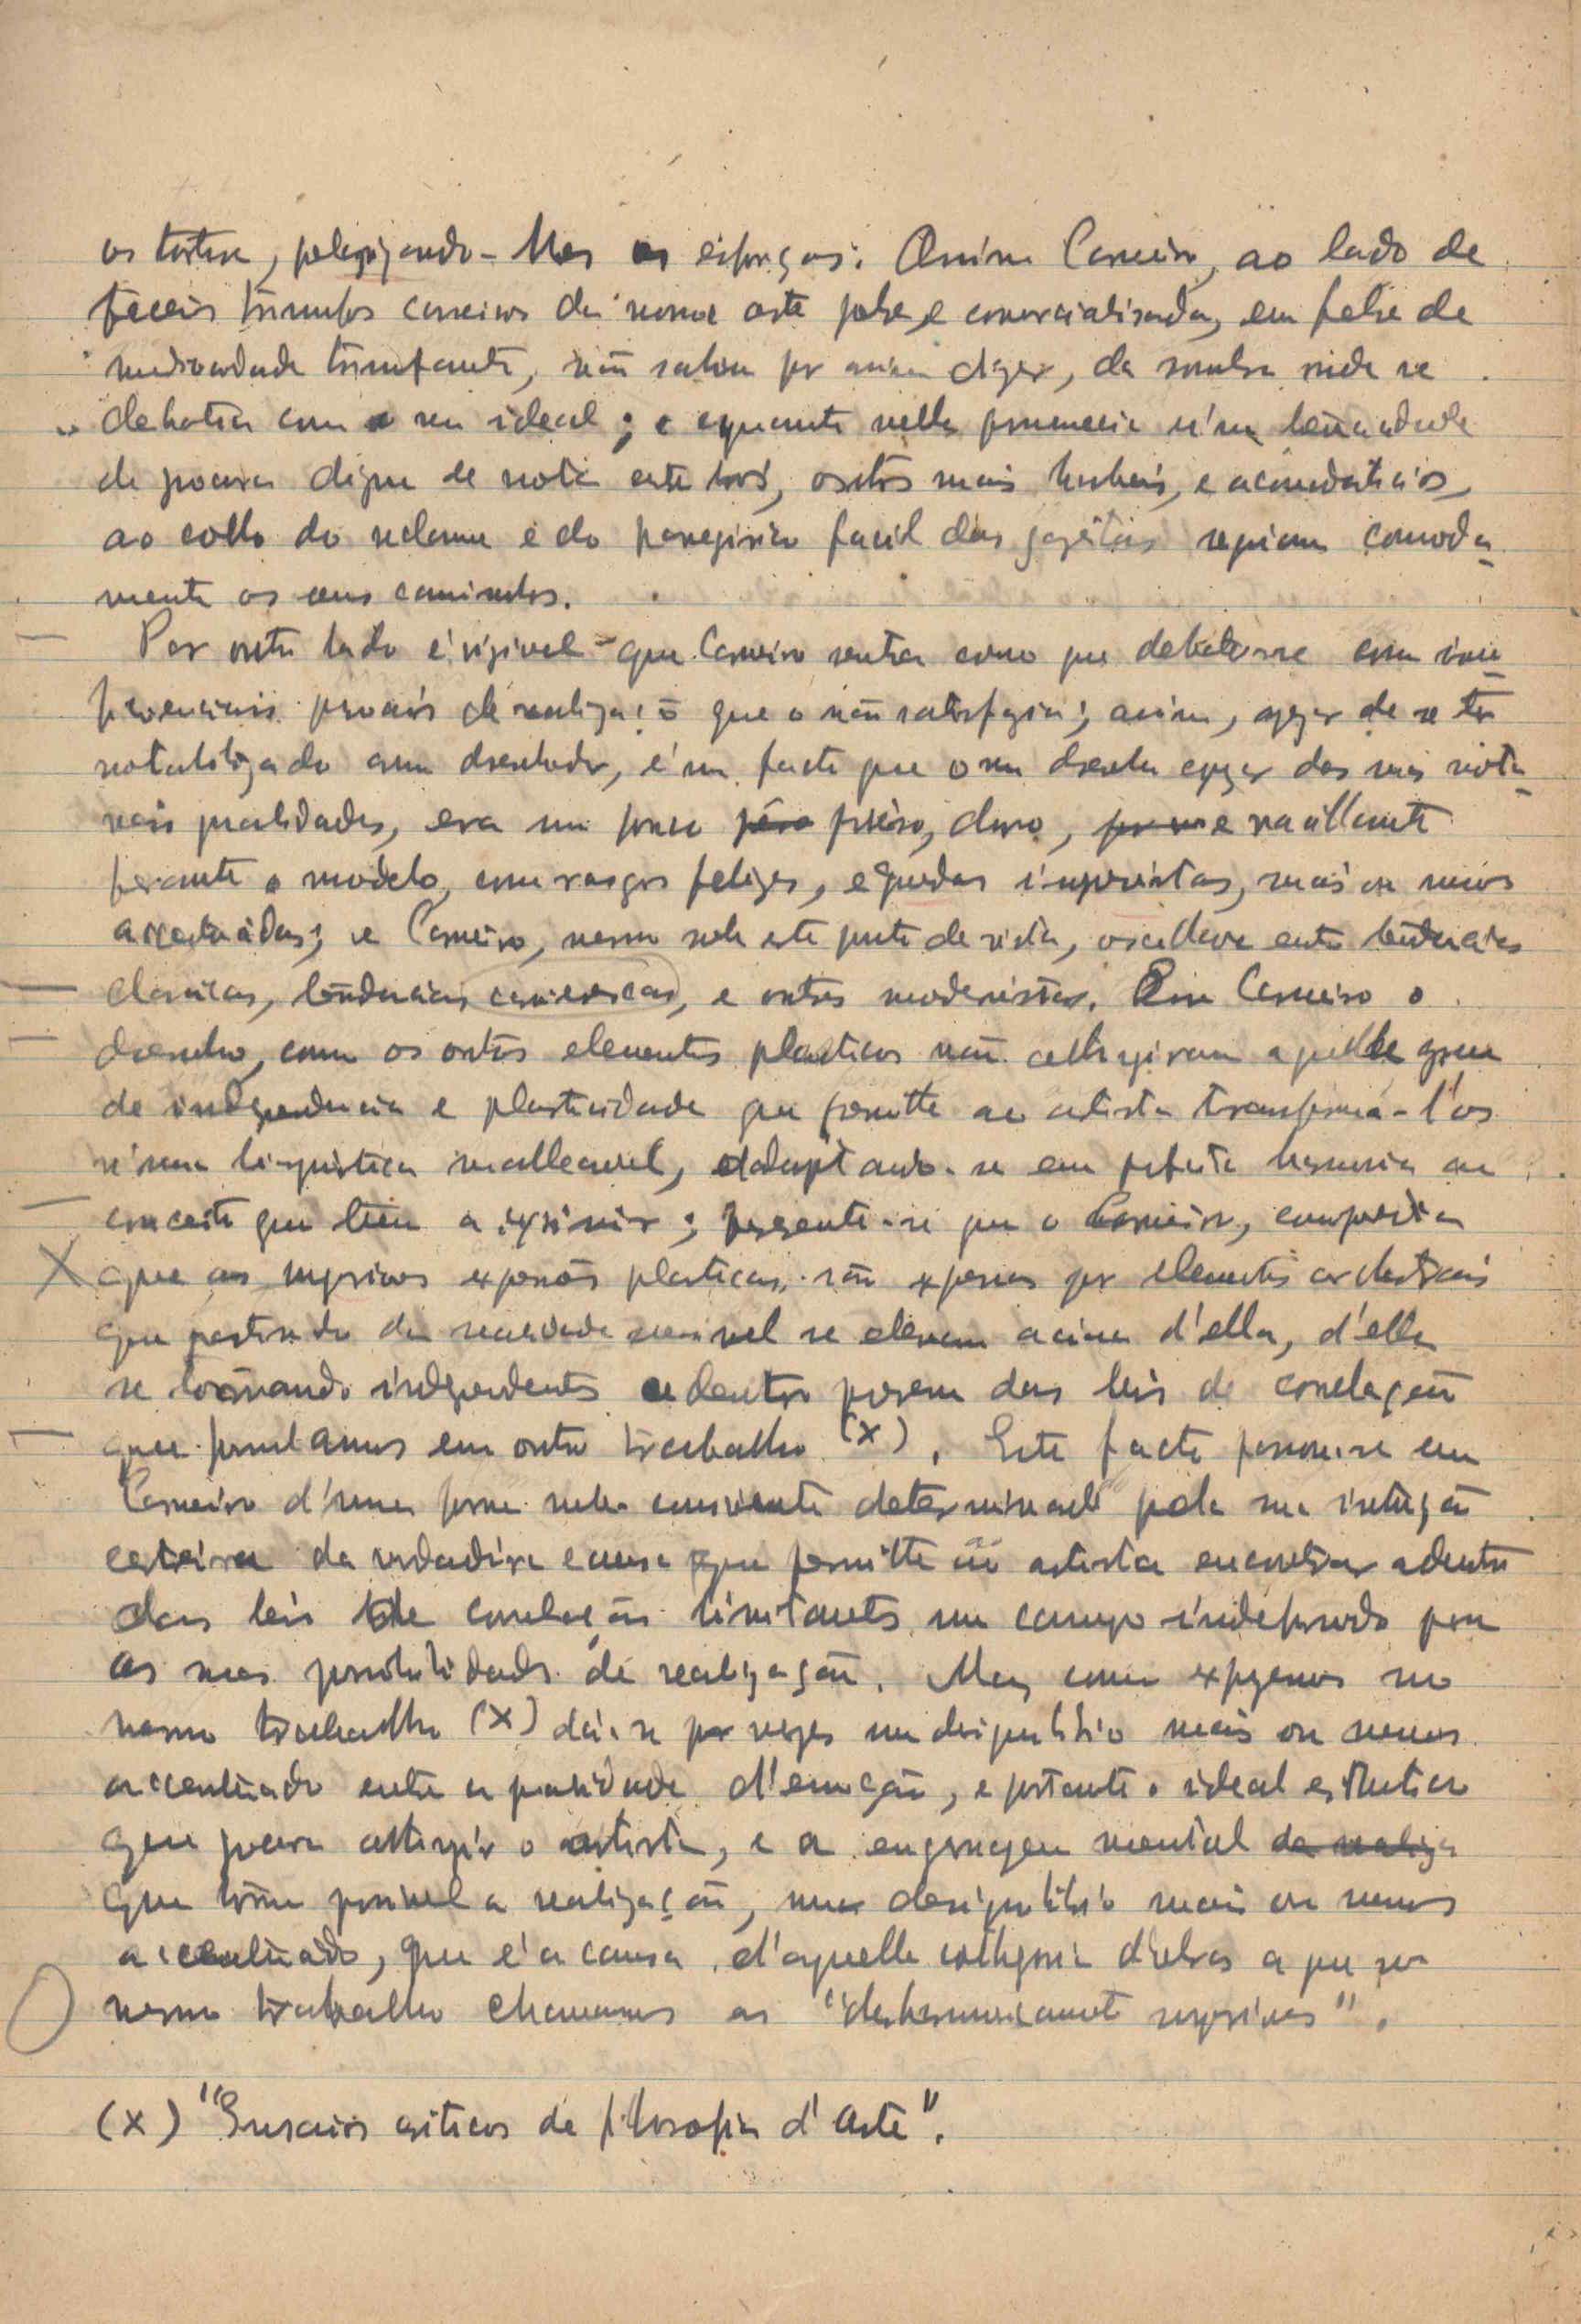 os tortura, paralizando-lhes os esforços. Assim Carneiro, ao lado de
faceis triumfos caseiros da nossa arte pobre, e comercialisada, em febre de
mediocridade triumfante, não sahiu por assim dizer, da sombra onde se
debatia com o seu ideal; e enquanto nella permanecia n'uma tenacidade
de pouca digna de nota entre nós, outros mais habeis, e acomodaticios,
ao collo do reclame e do panegirico facil das gazêtas seguiam comoda-
mente os seus caminhos.
Por outro lado é visivel que Carneiro sentia como que debater-se com
pessoais de realização que o não satisfazia; assim, apezar de se ter
notabilizado como desenhador, é um facto que o seu desenho apezar das suas nota-
veis qualidades, era um pouco preso, duro, e vacillante
perante o modelo, com rasgos felizes, e quedas imprevistas, mais ou menos
accentuadas; e Carneiro, mesmo sob este ponto de vista, oscillava entre tendencias
classicas, tendencias, e outras modernistas. Em Carneiro o
desenho, como os outros elementos plasticos não attingiram aquelle grau
de independencia e plasticidade que permitte ao artista transformá-l'os
n'uma linguistica malleavel, adaptando-se em perfeita harmonia ao
conceito que tem a exprimir; presente-se que o Carneiro,
que as supremas plasticas, são expressas por elementos
que partindo da realidade sensivel se elevam acima d'ella, d'ella
se tornando independentes adentro porem das leis de correlação
que formulamos em outro trabalho (X). Este facto passou-se em
Carneiro d'uma forma sub-consciente determinado pela sua intuição
certeira da verdadeira causa que permitte ao artista encontrar adentro
das leis de correlação limitantes um campo indefinido para
as suas possibilidades de realização. Mas como expozemos no
mesmo trabalho (X) dá-se por vezes um desiquilibrio mais ou menos
accentuado entre a qualidade d'emoção, e portanto o ideal esthetico
que procura attingir o artista, e a engrenagem mental da realiza
que torna possivel a realização, um desiquilibrio mais ou menos
accentuado, que é a causa d'aquella cathegoria d'obras a que no
mesmo trabalho chamamos as "desharmonicamente supremas".
(X) "Ensaios criticos de filosofia d'Arte".